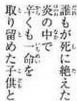 誰もが死に絶えた
炎の中で
辛くも一命を
取り留めた子供と